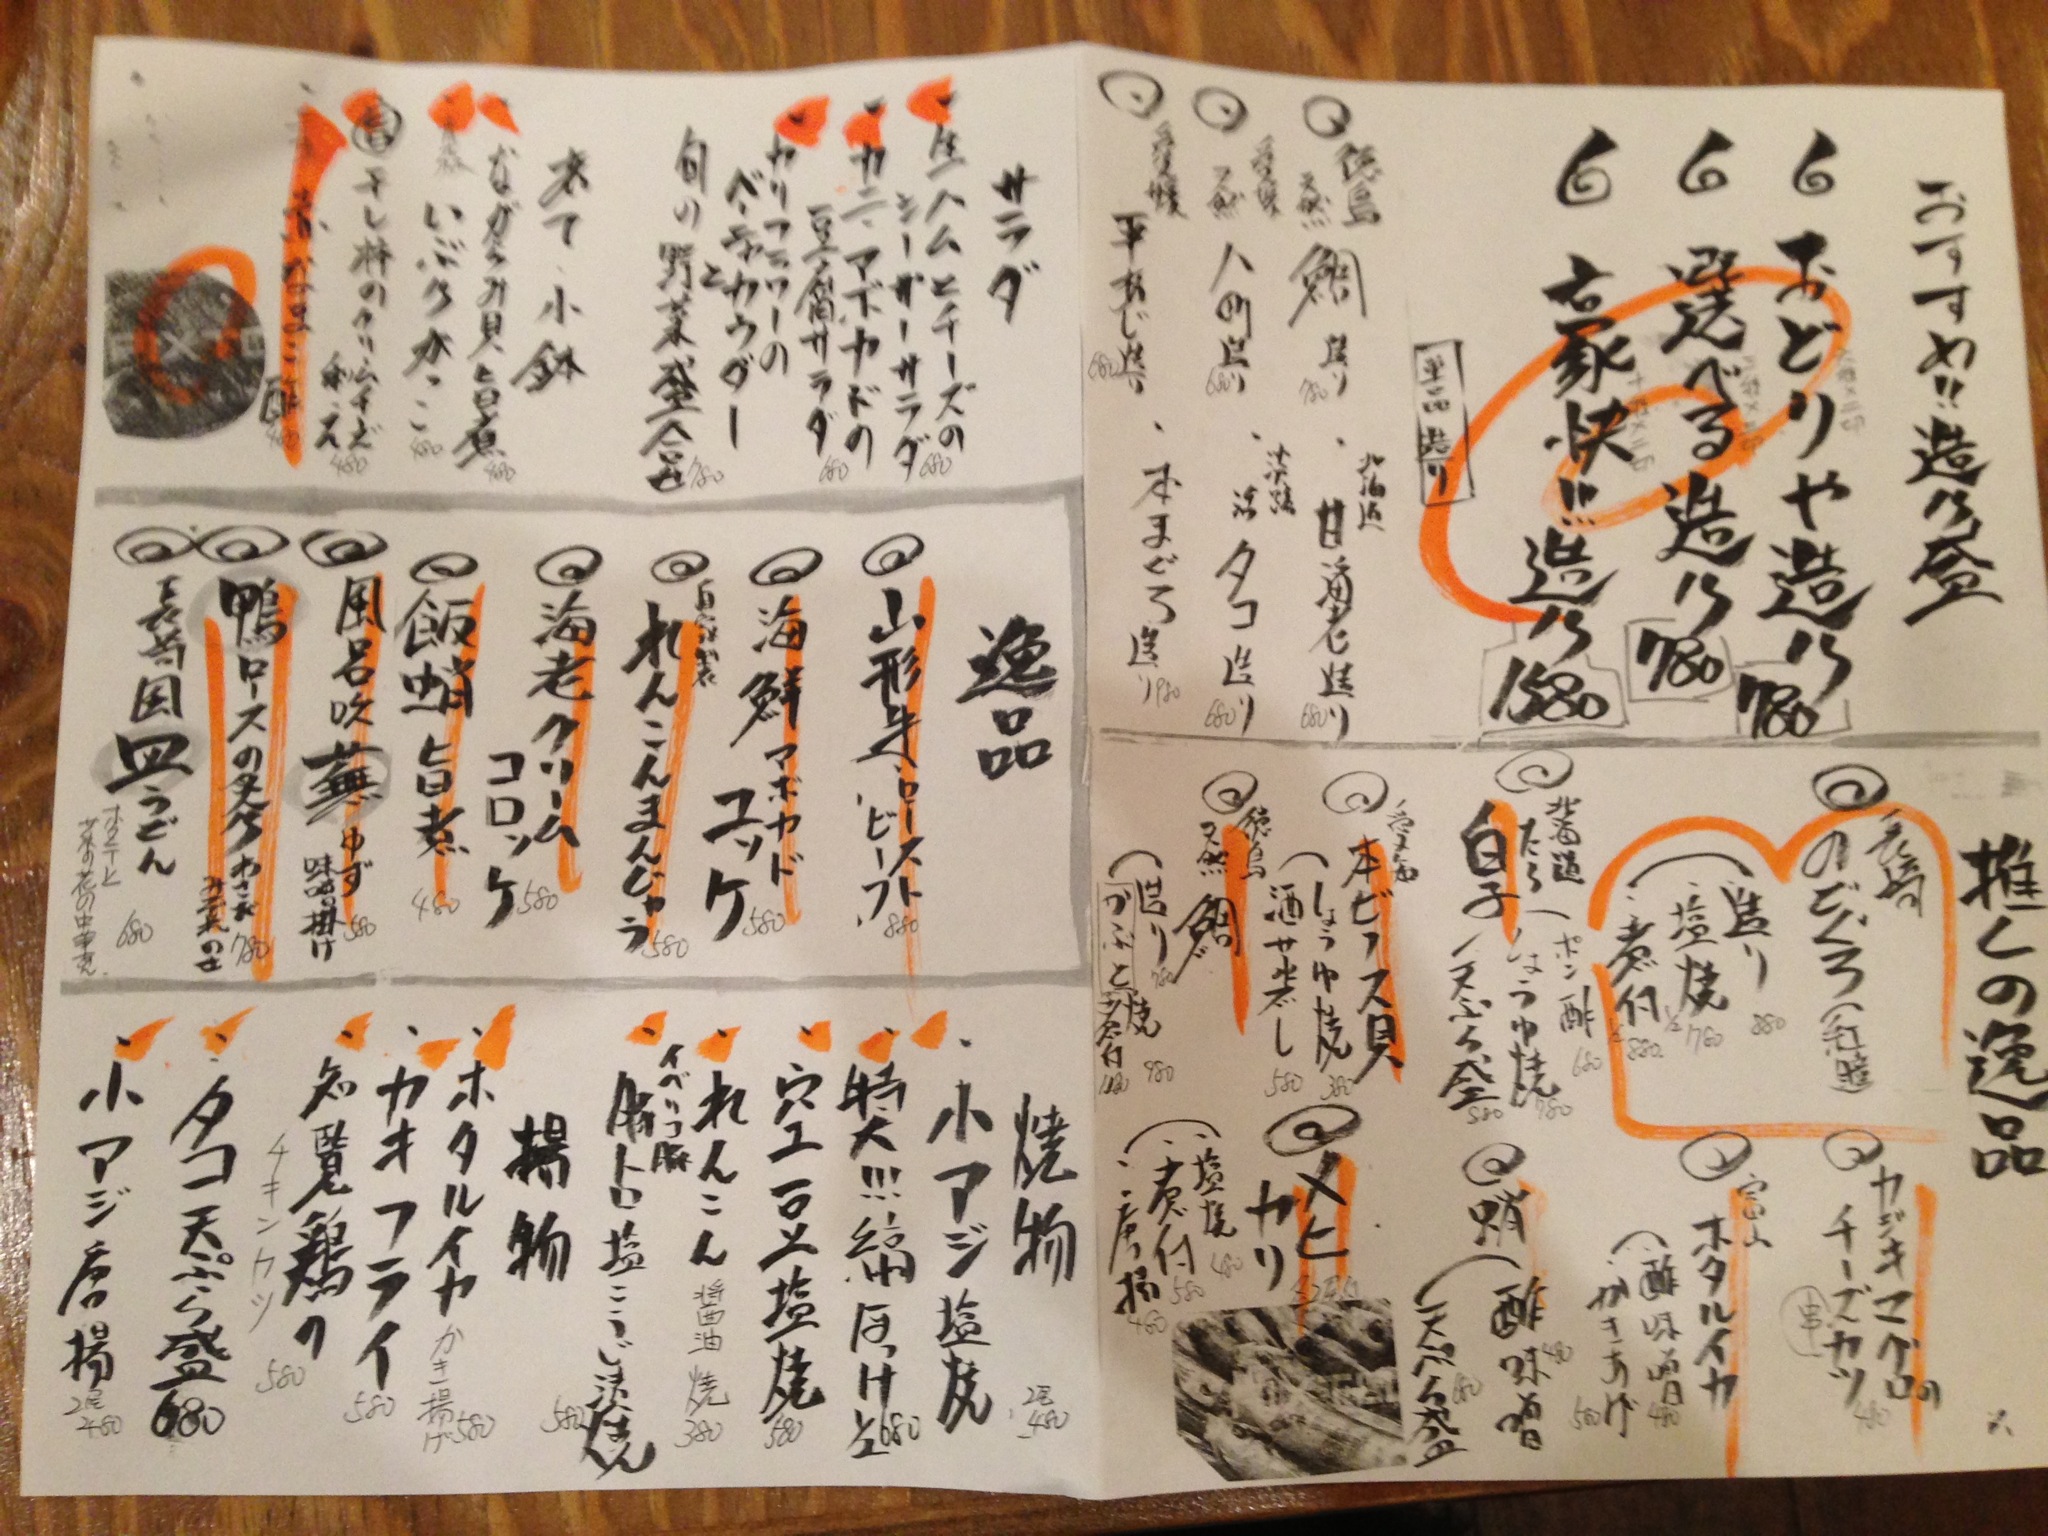 おすすめ!!造り盛
おどりや造り 780
選べる造り 780
豪快!!!造り 1580
単品造り
徳島 天然 鯛 造り 780
愛媛 天然 造り 680
愛媛 平あじ造り 680
北海道 甘海老造り 680
淡路 活 タコ造り 680
本まぐろ造り 980
推しの逸品
長崎 のどぐろ(紅瞳)
造り 880
塩焼 1/2 780
煮付 1/2 880
北海道 たら 白子
ポン酢 680
しょうゆ焼 780
天ぷら盛 580
愛知 本ビノス貝
しょうゆ焼 380
酒サ蒸し 580
徳島 天然 鯛
造り 780
かぶと 焼 980
カジキマグロの
チーズカツ 串 480
富山 ホタルイカ
酢味噌 480
かきあげ 580
蛸
酢味噌 480
天ぷら盛
メヒカリ
塩焼 480
煮付 580
唐揚 480
サラダ
生ハムとチーズの
シーザーサラダ 680
カニ・アボカドの
豆腐サラダ 680
カリフラワーの
ベーコンと
旬の野菜盛合せ 780
あて・小鉢
ながらみ貝旨煮 480
いぶりがっこ 480
干し柿のクリームチーズ
和え 480
赤なまこ酢
逸品
山形牛ローストビーフ 880
海鮮アボカド
ユッケ 580
自家製
れんこんまんじゅう 580
海老クリーム
コロッケ 580
飯蛸旨煮 480
風呂吹蕪 ゆず
味噌掛け 580
鴨ロースの炙り わさび 780
長崎風皿うどん 680
焼物
小アジ塩焼 2尾 480
特大!!!縞ほっけ 680
穴子一本塩焼 580
れんこん 醤油焼 380
イベリコ豚
豚トロ塩こうじ漬焼 580
揚物
ホタルイカ かき揚げ 580
カキフライ 580
知覧鶏の
チキンカツ 580
タコ天ぷら盛 680
小アジ唐揚 2尾 480